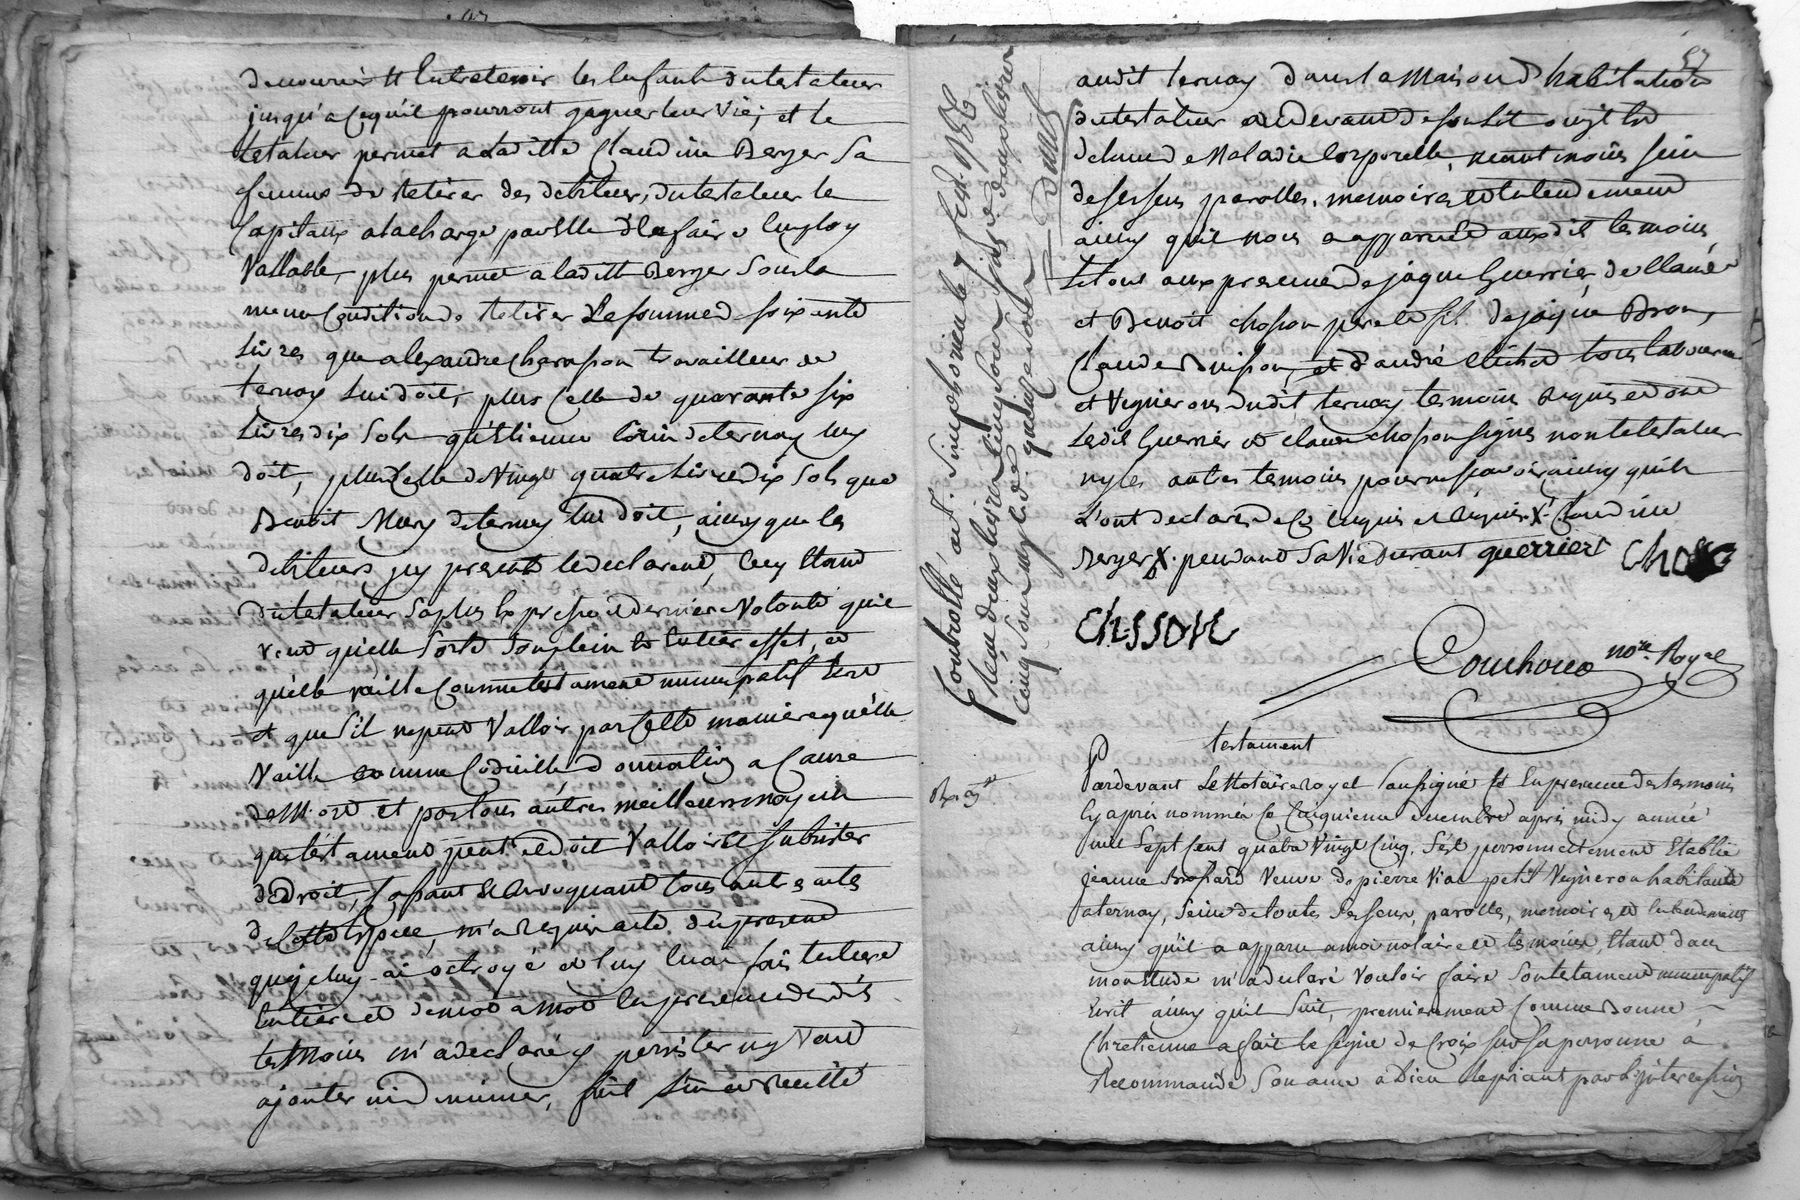 de nourrir Et Entretenir les Enfants du testateur
jusqu'a ce quil pourront gagner leur Vie; et le
testateur permet a Laditte Claudine Berger Sa
femme de retirer des debiteurs du testateur le
Capitaux a la charge par Elle d'En faire Employ
Vallable, plus permet a laditte Berger Sous la
meme Condition de retirer de somme de soixante
Livres que alexandre charapon travailleur de
ternay Lui doit, plus Celle de quarante six
Livres dix Sols qu'Etienne de ternay luy
doit, plus Celle de Vingt quatre Livres dix Sols que
Benoit Mury de ternay lui doit, ainsy que les
debiteurs icy present le declarent, Cecy Etant
du testateur Sa plus Expresse et derniere Volonté quil
veut quelle Sorte Son plein Et Entier effet, et
quelle vaille Comme testament nuncupatif Ecrit
et que S'il ne peut Valloir par Cette maniere qu'elle
Vaille comme Codicille donnation a Cause
de Mort et par tous autres meilleurs moyens
que testament peut et doit Valloir et subsister
de Droit, Cassant Et Revoquant tous autres actes
de Cette Espece, m'a Requis acte du present
que je luy ai octroyé et luy En ai fait lecture
Entiere et de mot a mot En presence desdits
temoins m'a declaré y persister ny Veut
ajouter ni diminuer, fait Lu et Recité
57
audit ternay dans la Maison d'habitation
du testateur au devant de son Lit ou git
detenu de Maladie Corporelle, neantmoins sain
de ses sens parolles, memoire, et Entendement
ainsy quil nous a apparu et auxdits temoins
Le tout aux presence de jaque Guerrier, de Claude
et Benoit chosson pere et fils de jaque Bron,
Claude Buisson, et d'andré tous laboureurs
et Vignerons dudit ternay temoins Requis et ont
Ledit Guerrier et Claude chosson signés non le testateur
ny les autres temoins pour ne scavoir ainsy quils
L'ont declaré de ce Enquis et Requis X. Claudine
Berger X. pendant Sa Vie Durant guerriert Choss
Chosson
Couchoud nore. Royal
Controllé a St. Simphorien le 7 1786
Reçu deux livres cinq sous
cinq sous
testament
Pardevant Le Notaire Royal Soussigné Et En presence des temoins
Cy après nommés Le Cinquieme decembre après midy année
mil Sept Cent quatre Vingt Cinq. S'est personnellement Etablie
jeanne Brossard Veuve de pierre Vial petit Vigneron habitante
a ternay, Seine de toutes Ses Sens, parolles, memoires et Entendement
ainsy quil a apparu a moi notaire et temoins, Etant dans
mon Etude m'a declaré Vouloir faire Son testament nuncupatif
Ecrit ainsy quil Suit, premierement Comme Bonne
Chretienne a fait le signe de Croix sur Sa personne a
Recommandé Son ame a Dieu le priant par l'jntercession